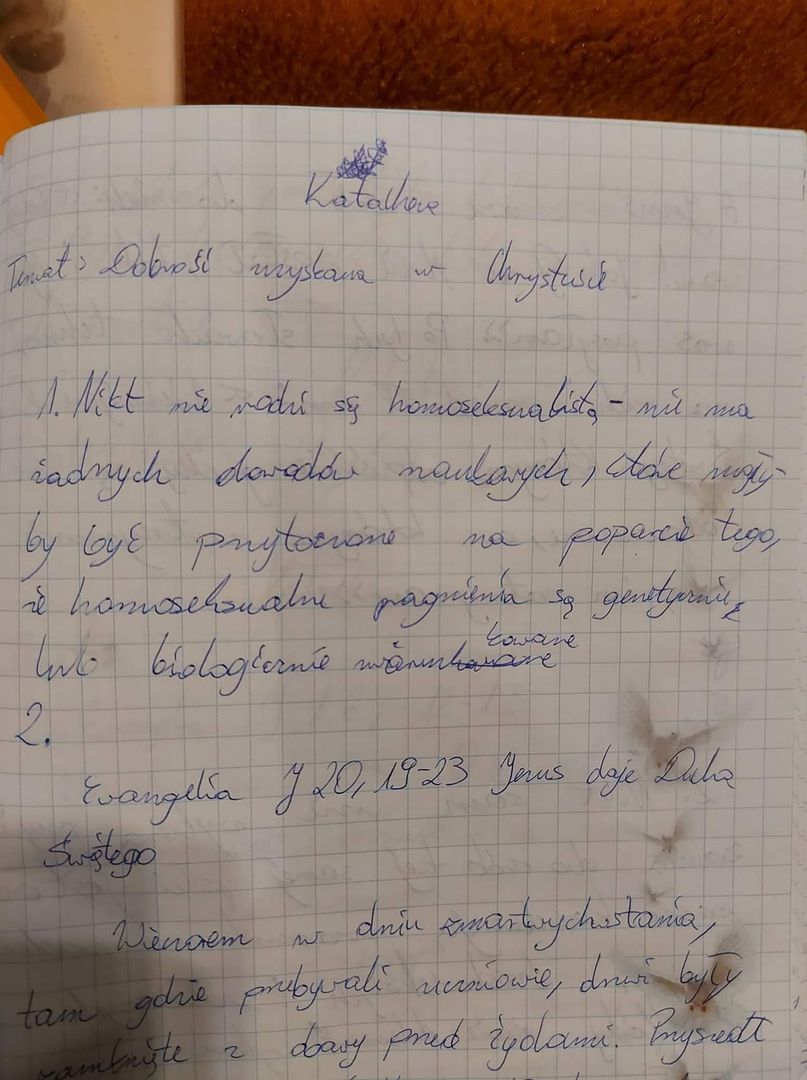 Katalheza
Temat: Dobrość uzyskana w Chrystusie
1. Nikt nie rodzi się homoseksualistą - nie ma
żadnych dowodów naukowych, które mogły-
by być przytoczone na poparcie tego,
że homoseksualne pragnienia są genetycznie,
lub biologicznie warunkowane
2.
Ewangelia J 20, 19-23 Jezus daje Ducha
Świętego
Wieczorem w dniu zmartwychwstania,
tam gdzie przebywali uczniowie, drzwi były
zamknięte z obawy przed żydami. Przyszedł